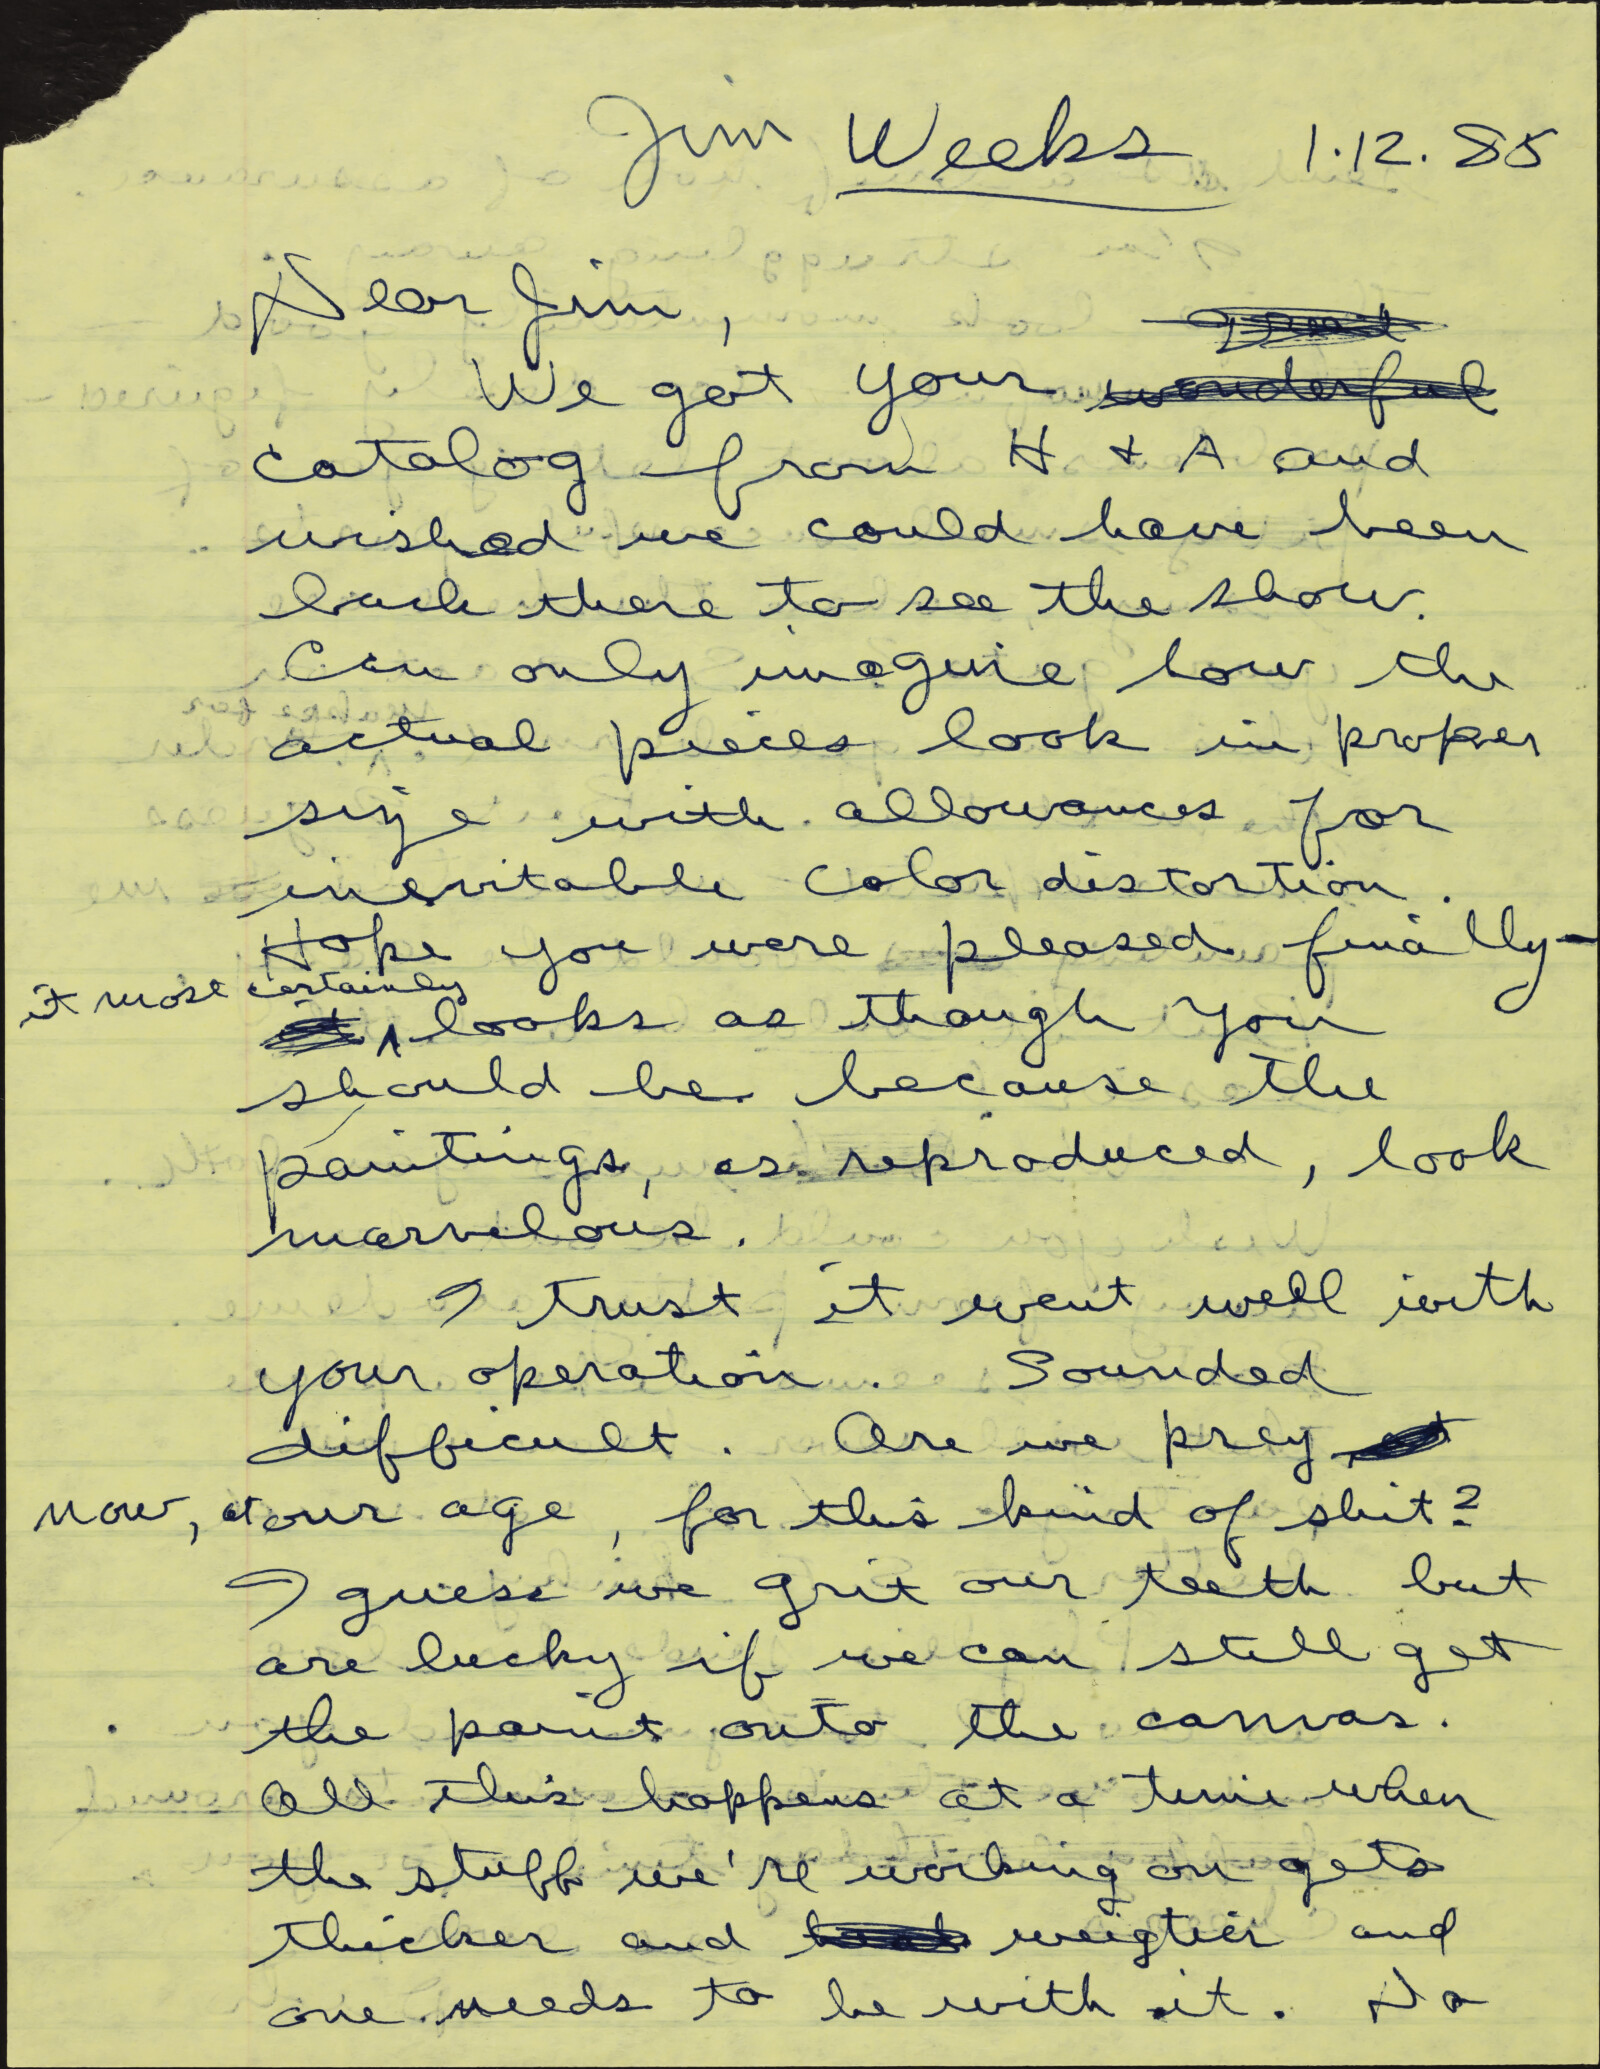 Jim Weeks 1.12.85
Dear Jim,
We got your wonderful
catalog from H + A and
wished we could have been
back there to see the show.
Can only imagine how the
actual pieces look in proper
size with allowances for
inevitable color distortion.
Hope you were pleased finally—
it most certainly
looks as though you
should be because the
paintings, as reproduced, look
marvelous.
I trust it went well with
your operation. Sounded
difficult. Are we prey
now, at our age, for this kind of shit?
I guess we grit our teeth but
are lucky if we can still get
the paint onto the canvas.
All this happens at a time when
the stuff we're working on gets
thicker and weigtier and
one needs to be with it. No